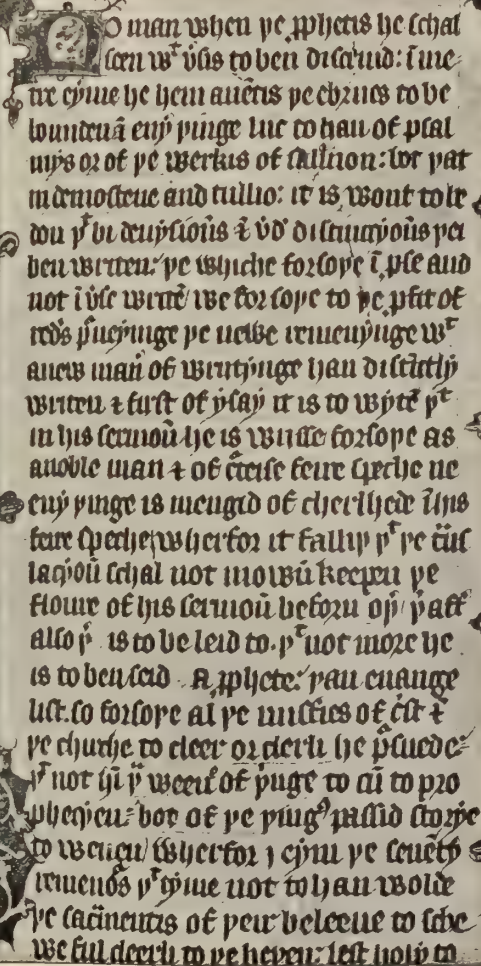 No man when þe ꝓphetis he schal
seen wᵗ v̄sis to ben discriuid: ī me-
tre eyme he hem anētis þe ebrues to be
bounden ā eny þinge luc to han of psal
mys or of þe werkis of salamon: bot þat
in demostene and tullio: it is wont to be
don þᵗ bi deuysiouns ⁊ vᵈ distincyouns þei
ben writen: þe whiche forsoþe ī pse and
not ī v̄se writē we forsoþe to þe pfit of
reds p̄ueyinge þe newe remenynge wᵗ
a new man̄ of writynge han distītly
writen ⁊ first of ysay it is to wytē þᵗ
in his sermoū he is wijsse forsoþe as
a noble man ⁊ of c̄teise feire speche ne
eny þinge is mengid of cherlhede ī his
feire speche wherfor it falliþ þᵗ þe t̄ns
lacyoū schal not mowū keepen þe
floure of his sermoū beforn oþ̄ þ̄ aft̄
also þ̄ is to be leid to. þᵗ not more he
is to ben seid A ꝓphete: þan euange
list. so forsoþe al þe misties of c̄st ⁊
þe churche to cleer or clerli he p̄suede:
þᵗ not hī þ̄ weenest of þinge to cū to pro
phecyen: bot of þe þingꝰ passid storye
to weuen wherfor i eym þe seuēty
remenos þᵗ tyme not to han wolde
þe sacmentis of þeir beleeue to sche
we ful cleerli to þe heþen: lest holy to